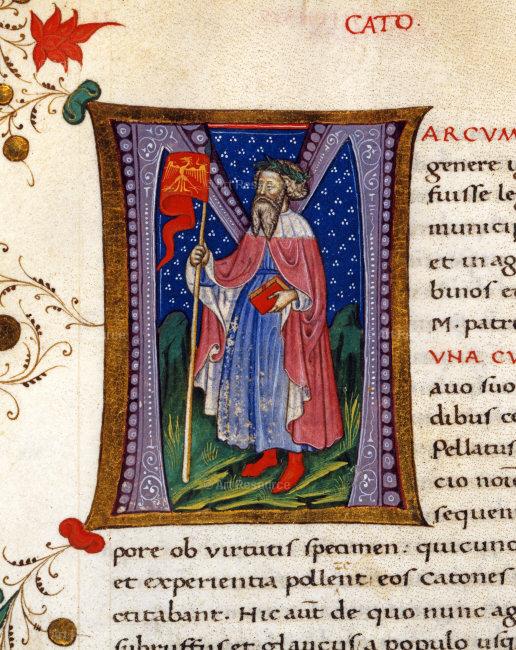 CATO.
MARCUM
genere
fuisse le
municip
et in ag
binos et
M. patre
UNA CU
avo suo
dibus ce
Pellatus
cio noie
sequen
pore ob virtutis specimen: quicunc
et experientia pollent: eos Catones
ctitabant. Hic aut de quo nunc ag
subruffus et glaucus, a populo usq
© Art Resource